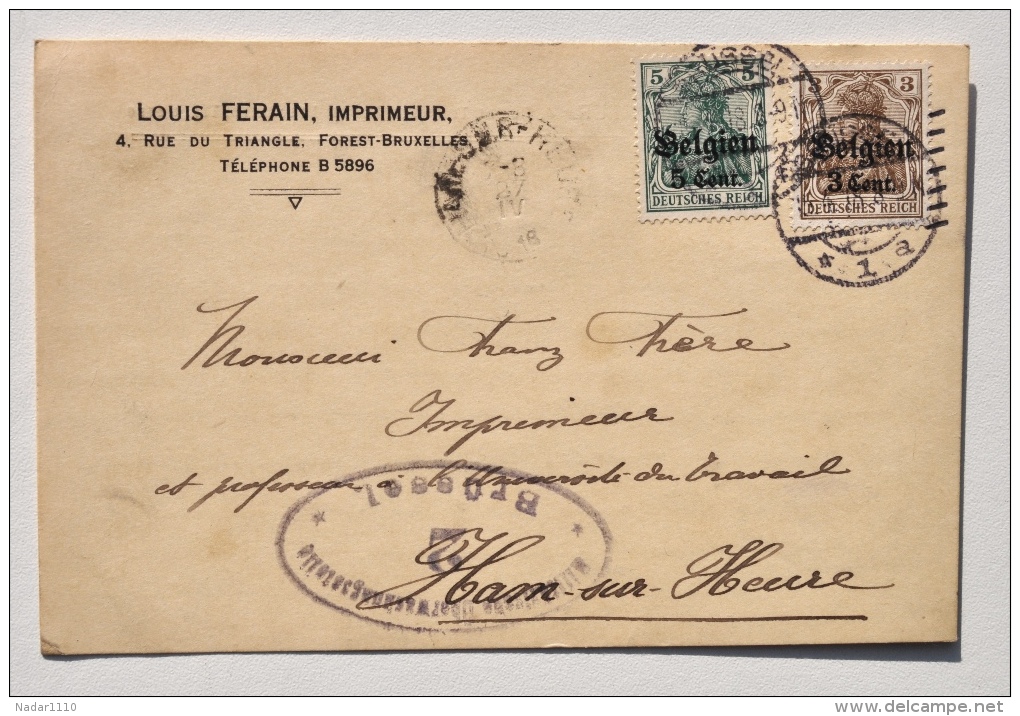 LOUIS FERAIN, IMPRIMEUR,
4, RUE DU TRIANGLE, FOREST-BRUXELLES
TÉLÉPHONE B 5896
5 5
Belgien
5 Cent.
DEUTSCHES REICH
3 3
Belgien
3 Cent.
DEUTSCHES REICH
* 1 a
Monsieur Franz Frère
Imprimeur
et professeur à l'Université du Travail
Ham-sur-Heure
Brüssel
2
Nadar1110
delcampe.net